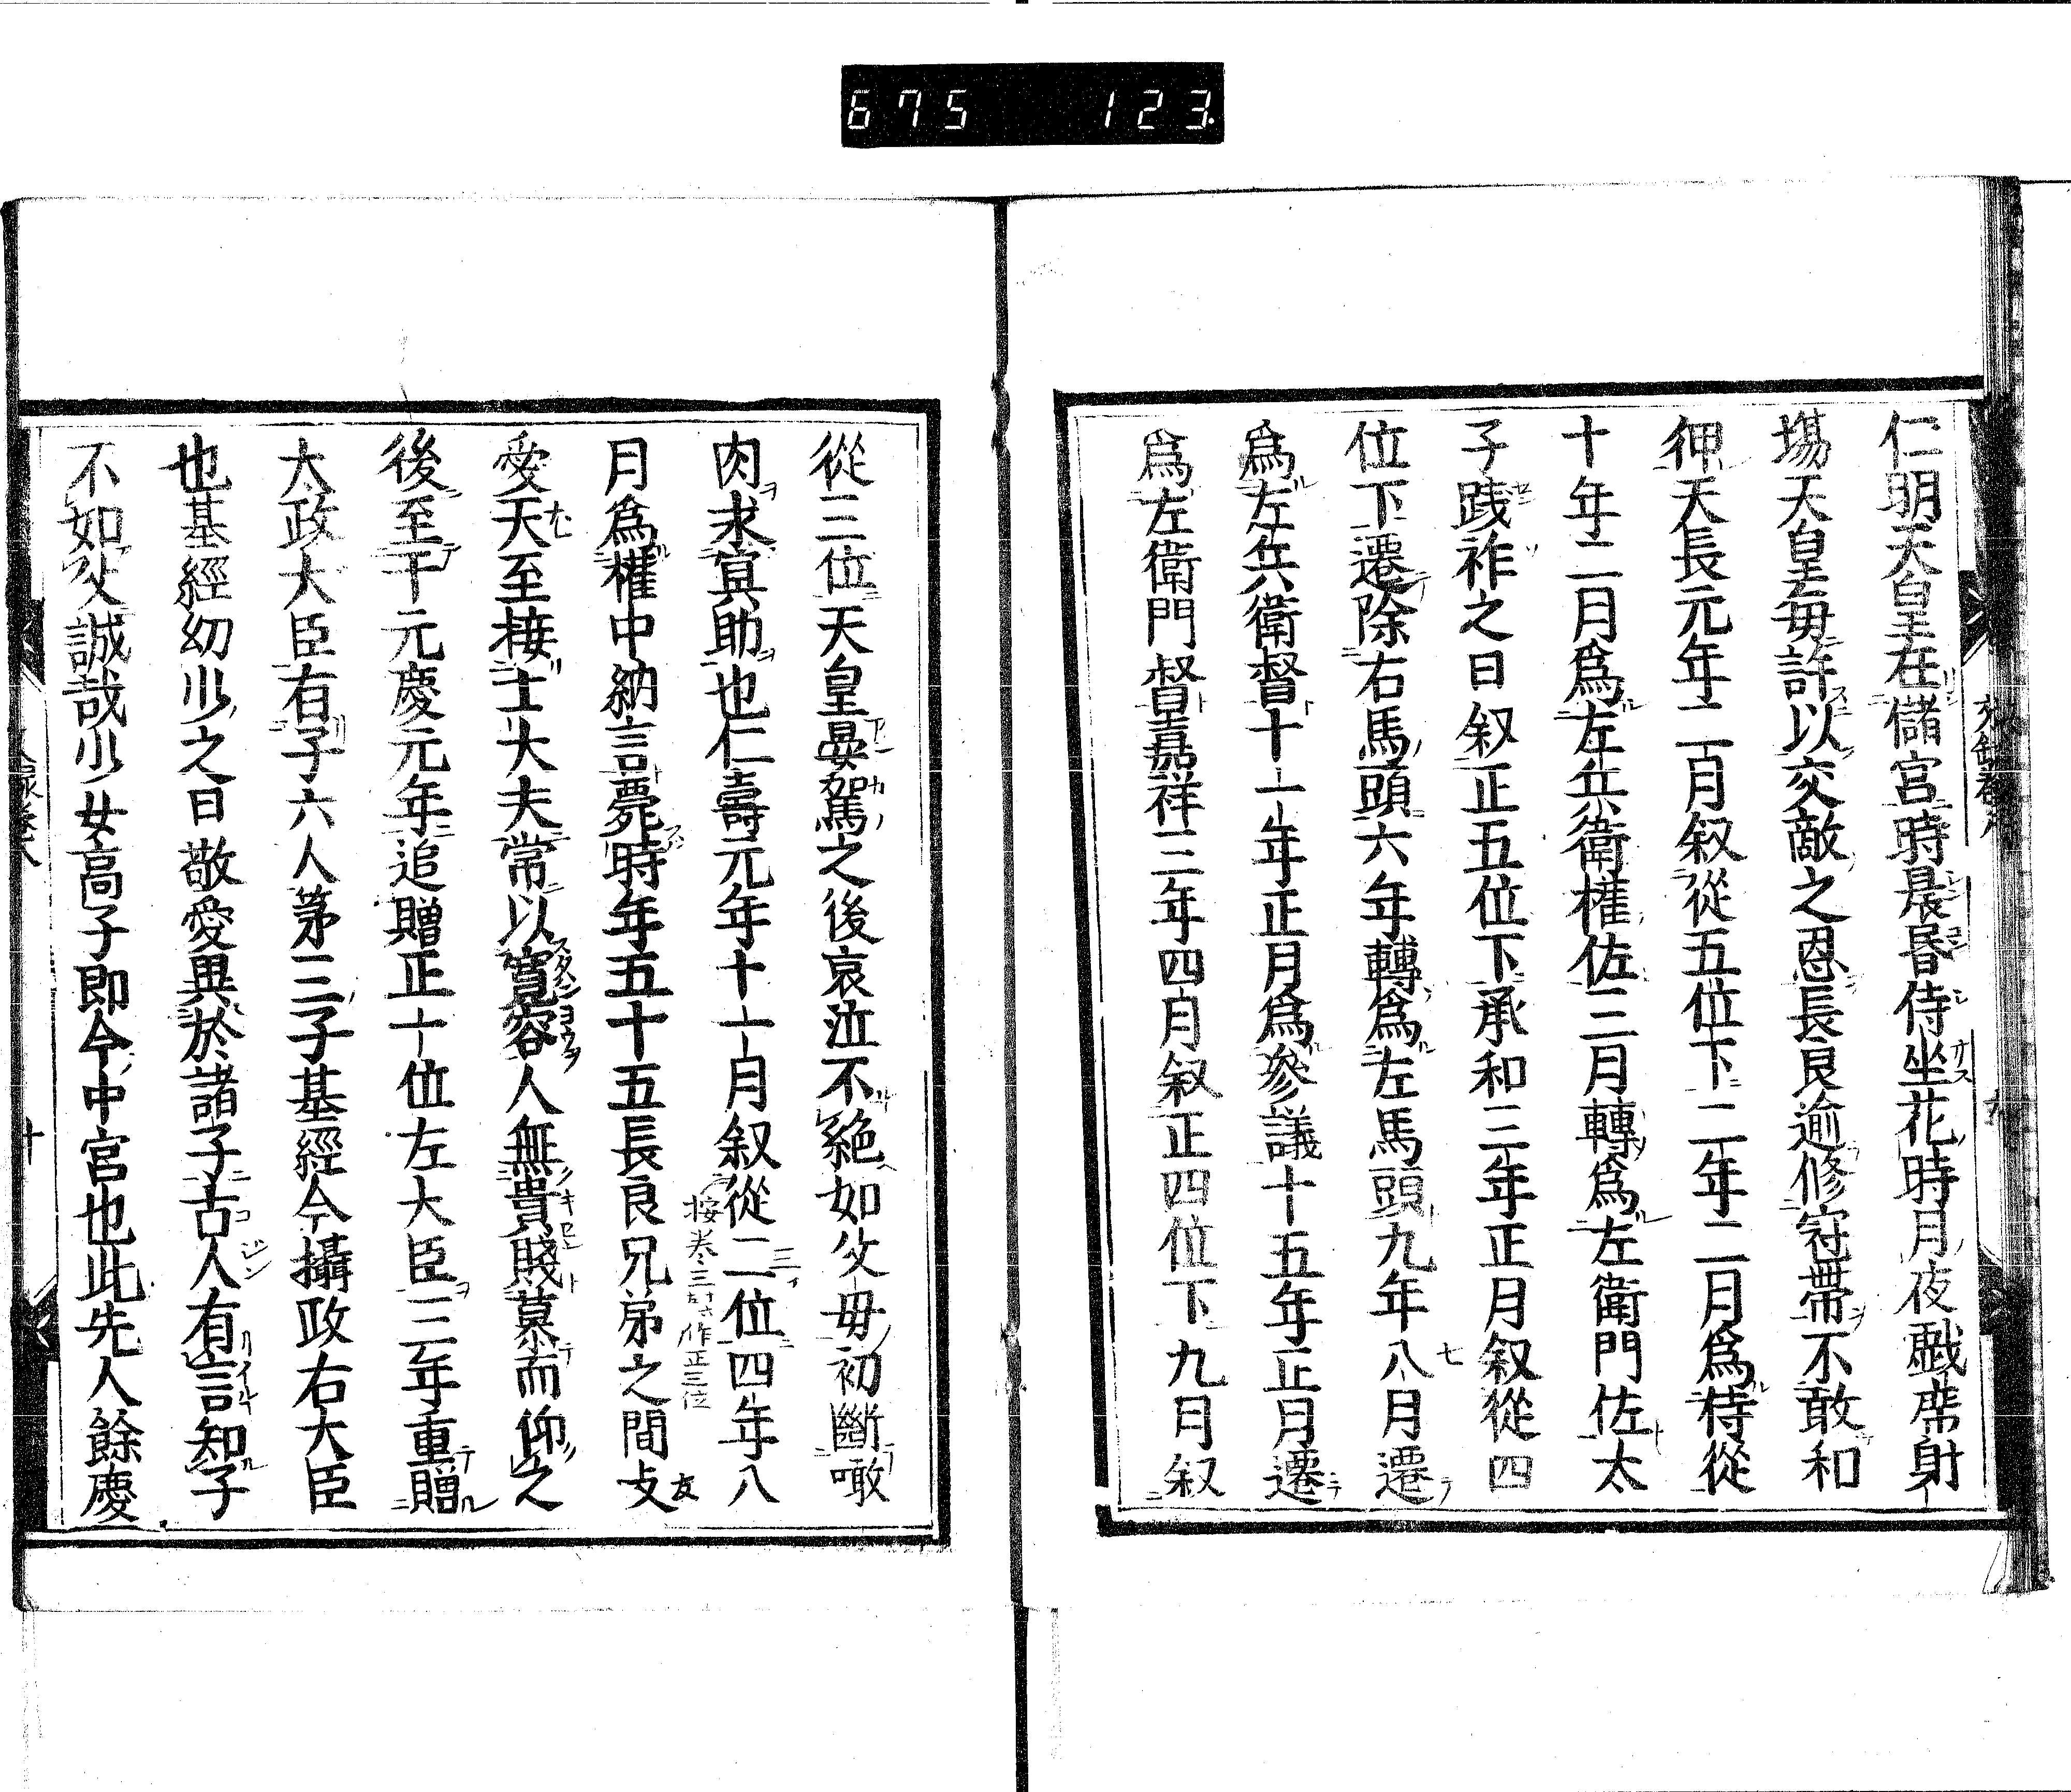 675 123
仁明天皇在儲宮時晨昏侍坐花時月夜戯席射
塲天皇毎許以交敵之恩長良逾修冠帶不敢和
狎天長元年二月叙從五位下二年二月爲侍從
十年二月爲左兵衛權佐三月轉爲左衛門佐太
子踐祚之日叙正五位下承和三年正月叙從四
位下遷除右馬頭六年轉爲左馬頭九年八月遷
爲左兵衛督十一年正月爲參議十五年正月遷
爲左衛門督嘉祥三年四月叙正四位下九月叙
從三位天皇晏駕之後哀泣不絶如父母初斷噉
肉求冥助也仁壽元年十一月叙從二位四年八
按卷三十六作正三位
月爲權中納言薨時年五十五長良兄弟之間友
愛天至接士大夫常以寛容人無貴賤慕而仰之
後至于元慶元年追贈正一位左大臣三年重贈
太政大臣有子六人第三子基經今攝政右大臣
也基經幼少之日敬愛異於諸子古人有言知子
不如父誠哉少女高子即今中宮也此先人餘慶